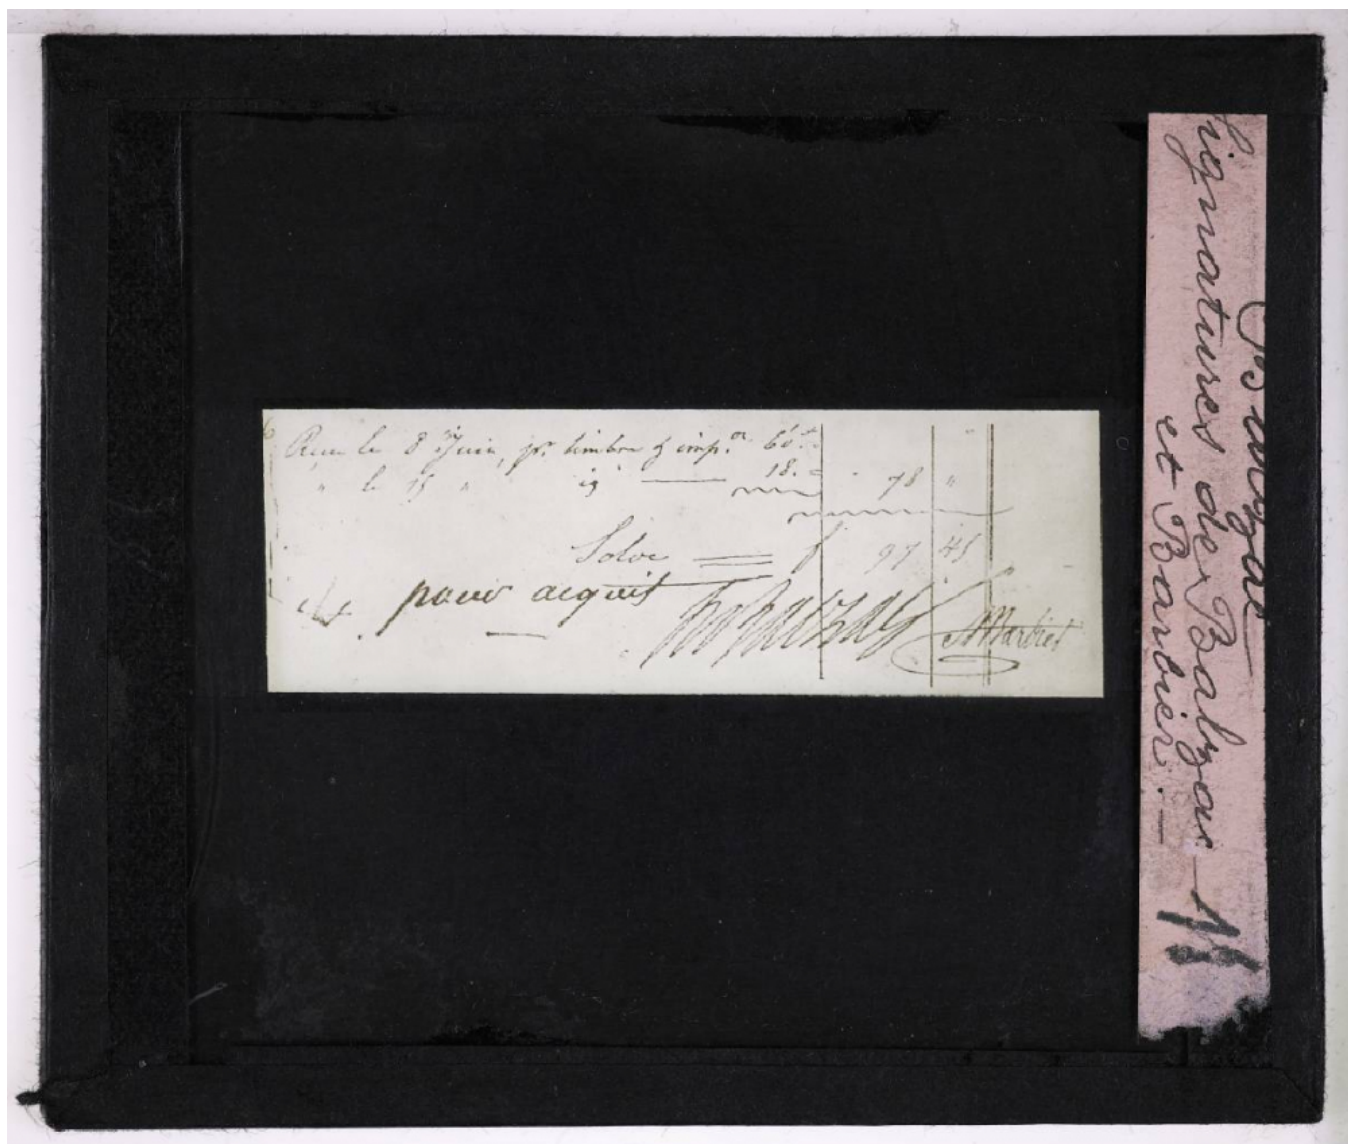 Reçu le 8 Juin, pr. timbre & impon. 60"
" le 15 " id 18. " 78 "
Solde f 97 45
pour acquit
h Balzac ABarbier
Balzac
Signatures de Balzac
et Barbier. —